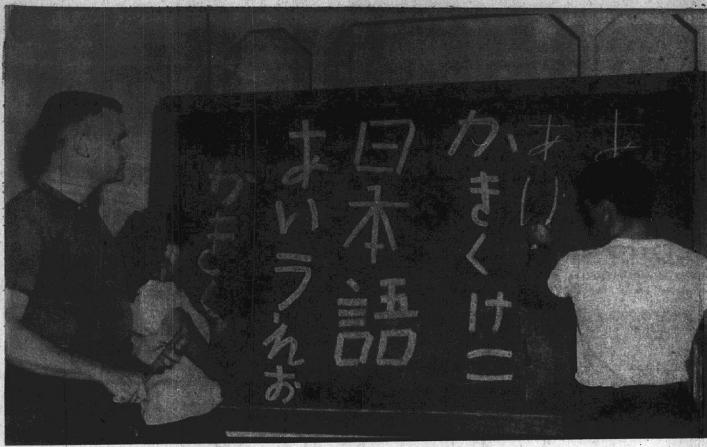 あ
あい
かきくけこ
日本語
あいうえお
かきく